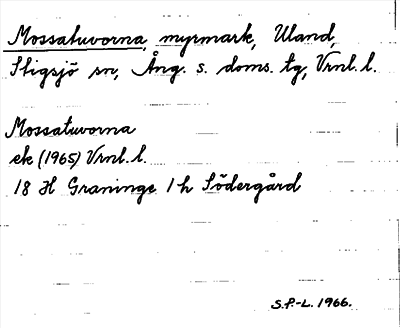 Mossatuvorna, myrmark, Uland,
Stigsjö sn, Ång. s. doms. tg, Vrnl. l.
Mossatuvorna
ek (1965) Vrnl. l.
18 H Graninge 1 h Södergård
S.P.-L. 1966.